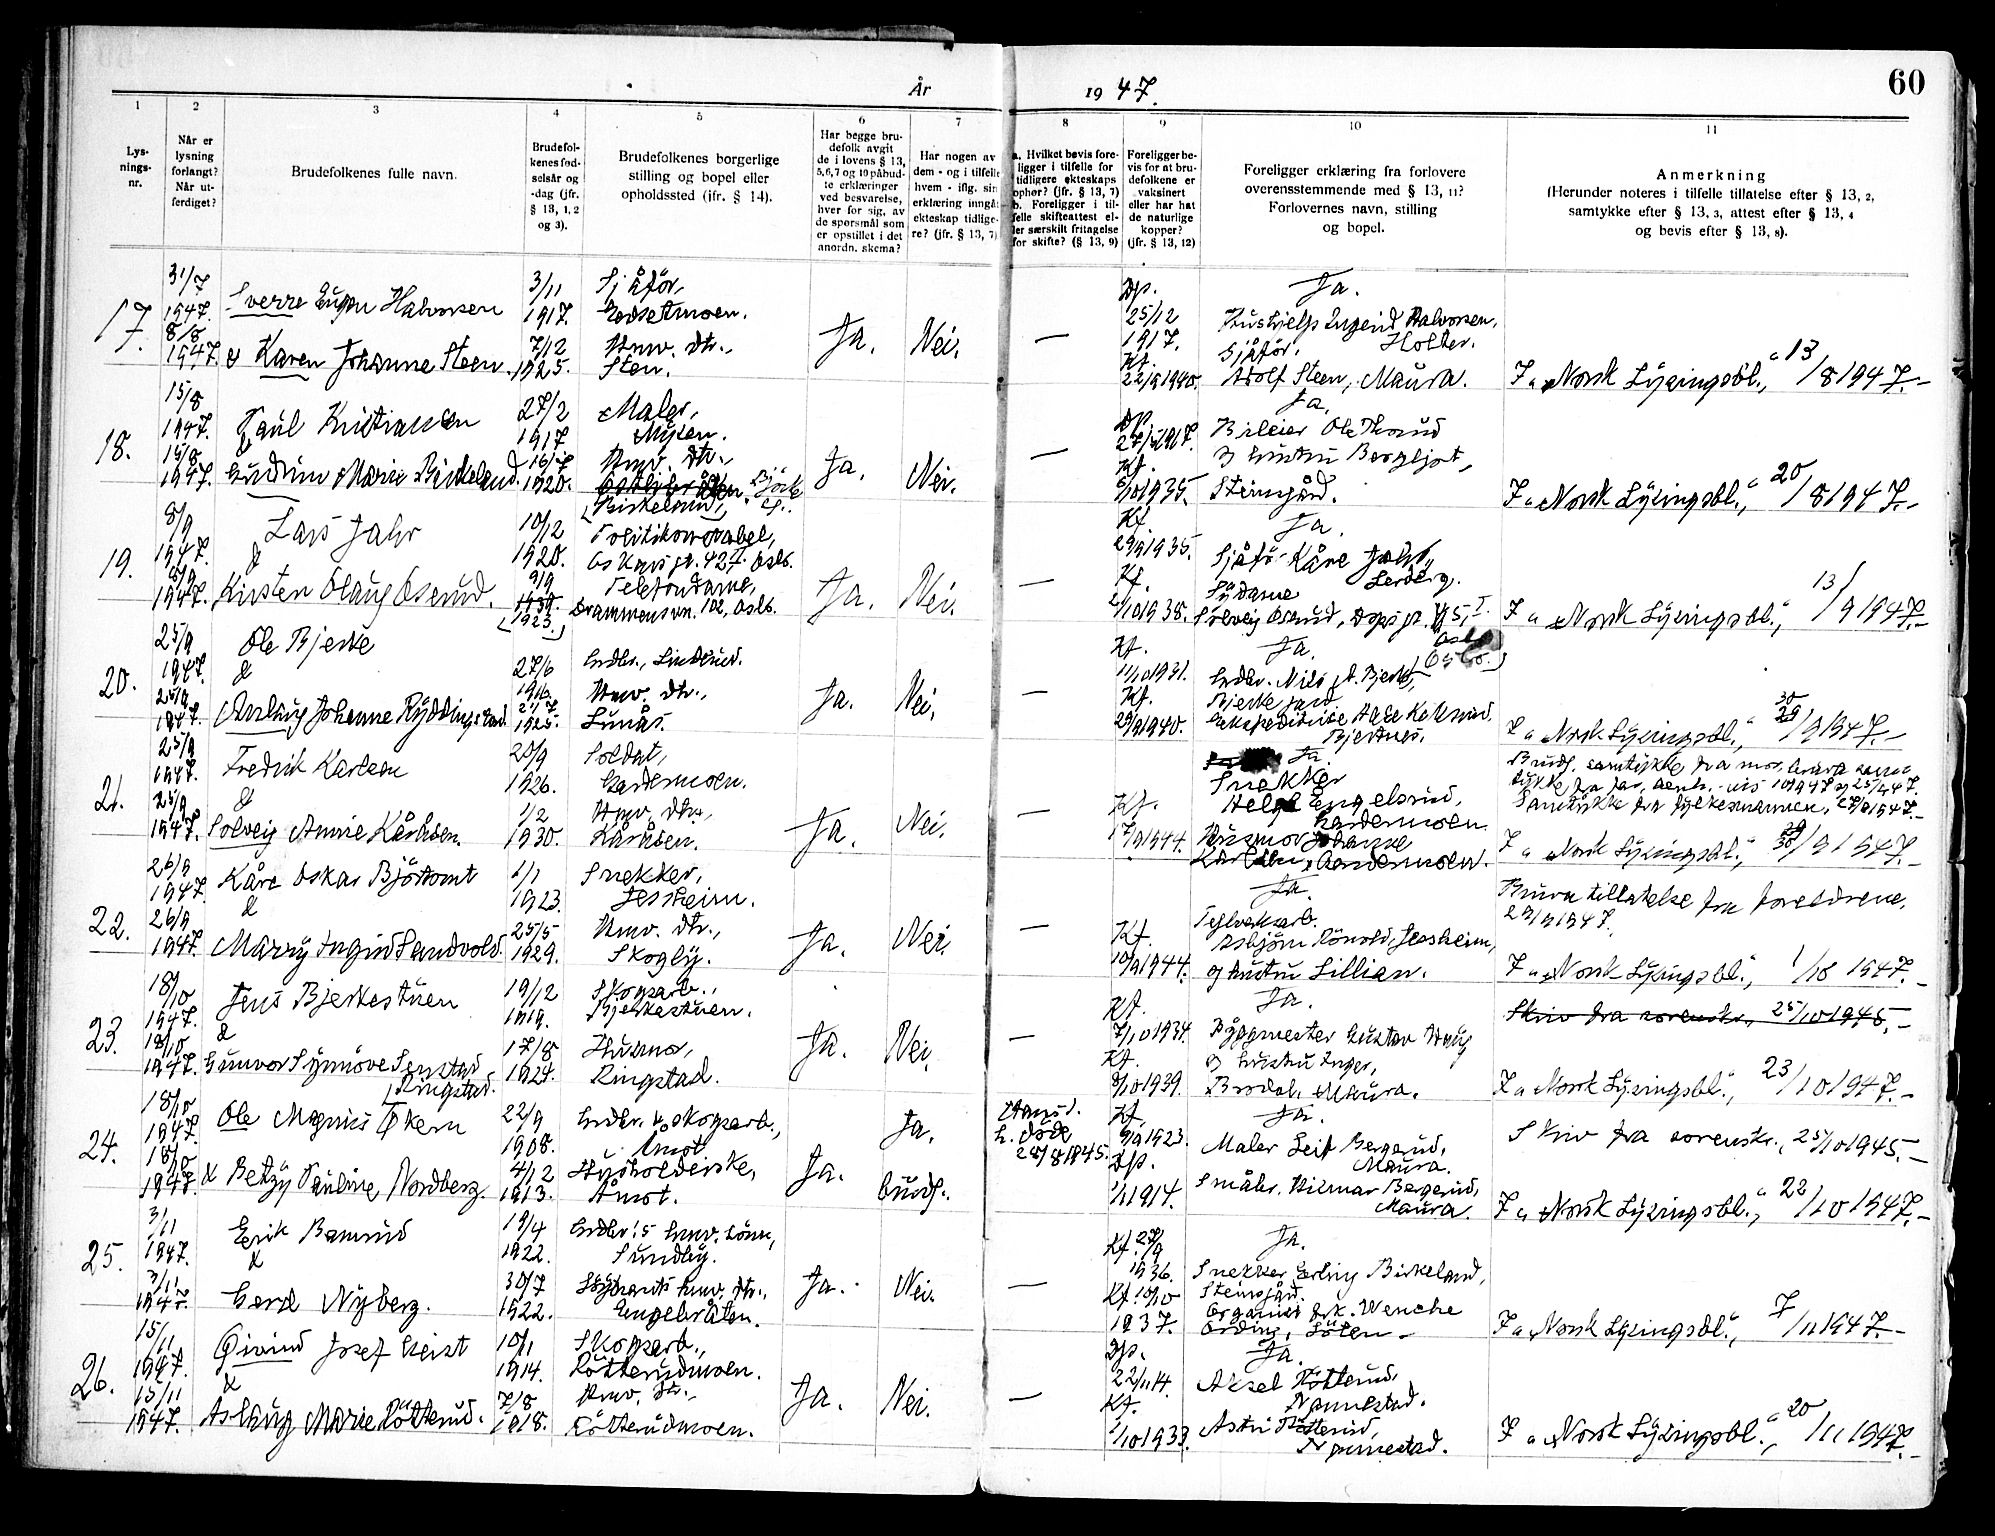 60
År 1947.
1
2
3
4
5
6
7
8
9
10
11
Lys-
nings-
nr.
Når er
lysning
forlangt?
Når ut-
ferdiget?
Brudefolkenes fulle navn.
Brudefol-
kenes fød-
selsår og
-dag (jfr.
§ 13, 1, 2
og 3).
Brudefolkenes borgerlige
stilling og bopel eller
opholdssted (jfr. § 14).
Har begge bru-
defolk avgit
de i lovens § 13,
5, 6, 7 og 10 påbud-
te erklæringer
ved besvarelse,
hver for sig, av
de spørsmål som
er opstillet i det
anordn. skema?
Har nogen av
dem - og i tilfelle
hvem - iflg. sin
erklæring inngåt
ekteskap tidlige-
re? (jfr. § 13, 7)
a. Hvilket bevis fore-
ligger i tilfelle for
tidligere ekteskaps
ophør? (jfr. § 13, 7)
b. Foreligger i til-
felle skifteattest el-
ler særskilt fritagelse
for skifte? (§ 13, 9)
Foreligger be-
vis for at bru-
defolkene er
vaksinert
eller har hat
de naturlige
kopper?
(jfr. § 13, 12)
Foreligger erklæring fra forlovere
overensstemmende med § 13, 11?
Forlovernes navn, stilling
og bopel.
Anmerkning
(Herunder noteres i tilfelle tillatelse efter § 13, 2,
samtykke efter § 13, 3, attest efter § 13, 4
og bevis efter § 13, 8).
17.
31/7
1947.
8/8
1947.
Sverre Halvorsen
& Karen Johanne Steen.
3/11
1917.
7/12
1925.
Sjåför,
Hmv. dtr.,
Sten.
Ja.
Nei.
—
Dp.
25/12
1917.
Kf.
Ja.
Halvorsen,
Sjåför. Holter.
Adolf Steen, Maura.
I "Norsk Lysingsbl.," 13/8 1947.-
18.
15/8
1947.
15/8
1947.
Paul Kristiansen
&
Gudrun Marie Birkeland.
27/2
1917
16/7
1920.
Maler,
Mysen.
Hmv. dtr.,
Birkelund,
Ja.
Nei.
—
Dp.
Kf.
Ja.
Bileier Ole
og hustru Bergljot,
Steinsgård.
I "Norsk Lysingsbl.," 20/8 1947.-
19.
8/9
1947.
8/9
1947.
Lars Jahr
&
Kirsten Olaug Oserud.
10/12
1920.
9/9
1923.
Politikonstabel,
Oskars gt. 427. Oslo.
Telefondame,
Drammensvn. 102, Oslo.
Ja.
Nei.
—
Kf.
29/9 1935.
Kf.
2/10 1938.
Ja.
Sjåför Kåre Jahr,
Lerberg.
Sydame
Solveig Oserud,
Oslo.
I "Norsk Lysingsbl.," 13/9 1947.-
20.
25/9
1947.
25/9
1947.
Ole Bjerke
&
Aslaug Johanne
27/6
1916.
21/7
1925.
Grdbr.,
Hmv. dtr.,
Lunås.
Ja.
Nei.
—
Kf.
11/10 1931.
Kf.
29/9 1940.
Ja.
Grdbr. Nils A. Bjerke,
Bjerke gård
Bjertnes.
I "Norsk Lysingsbl.," 30/9 1947.-
21.
25/9
1947.
25/9
1947.
Fredrik Karlsen
&
Solveig Annie Kåråsen.
20/9
1926.
1/2
1930.
Soldat,
Gardermoen.
Hmv. dtr.,
Kåråsen.
Ja.
Nei.
—
Kf.
17/9 1944.
Ja.
Snekker
Helge Engelsrud,
Gardermoen.
Husmor Johanne
Gardermoen.
Samtykke fra fylkesmannen, 27/9 1947.-
I "Norsk Lysingsbl.," 30/9 1947.-
22.
26/9
1947.
26/9
1947.
Kåre Oskar Björtomt
&
Marry Ingrid Sandvold.
1/1
1923.
25/5
1929.
Snekker,
Jessheim.
Hmv. dtr.,
Skogly.
Ja.
Nei.
—
Kf.
10/9 1944.
Ja.
Teglverksarb.
Asbjörn Rönold, Jessheim,
og hustru Lillian.
Bruden tillatelse fra foreldrene,
I "Norsk Lysingsbl.," 1/10 1947.-
23.
18/10
1947.
18/10
1947.
Jens Bjerkestuen
&
Gunvor Synnöve Senstad
Ringstad.
19/12
1919.
17/8
1924.
Skogsarb.,
Bjerkestuen.
Husmor,
Ringstad.
Ja.
Nei.
—
Kf.
7/10 1934.
Kf.
8/10 1939.
Ja.
Byggmester Gustav Haug
og hustru Inger,
Brodal, Maura.
Skriv fra sorenskr., 25/10 1945.-
I "Norsk Lysingsbl.," 23/10 1947.-
24.
18/10
1947.
18/10
1947.
Ole Magnus Økern
& Betzy Pauline Nordberg.
22/9
1908.
4/12
1913.
Grdbr. & skogsarb.,
Åmot
Husholderske,
Åmot.
Ja.
Ja.
brudg.
h. döde
28/8 1945.
Kf.
9/9 1923.
Dp.
1/11 1914.
Ja.
Maler Leif Bergerud,
Maura.
Småbr. Hilmar Bergerud,
Maura.
Skriv fra sorenskr., 25/10 1945.-
I "Norsk Lysingsbl.," 22/10 1947.-
25.
3/11
1947.
3/11
1947.
Erik Bamrud
&
Gerd Nyberg.
19/4
1922.
30/7
1922.
Grdbr.s hmv. sönn,
Sundby.
hmv. dtr.,
Engelsråten.
Ja.
Nei.
—
Kf. 27/9
1936.
Kf. 10/10
1937.
Ja.
Snekker Erling Birkeland,
Steinsgård.
Organist frk. Wenche
Ording, Löten -
I "Norsk Lysingsbl.," 7/11 1947.-
26.
15/11
1947.
15/11
1947.
Øivind Josef Geist
&
Aslaug Marie Rötterud.
10/1
1914.
7/8
1918.
Skogsarb.,
Rötterudmoen.
Hmv. dtr.,
Rötterudmoen.
Ja.
Nei.
—
Dp.
22/11 14.
Kf.
1/10 1933.
Ja.
Aksel Rötterud,
Nannestad.
Astri Rötterud,
Nannestad.
I "Norsk Lysingsbl.," 20/11 1947.-